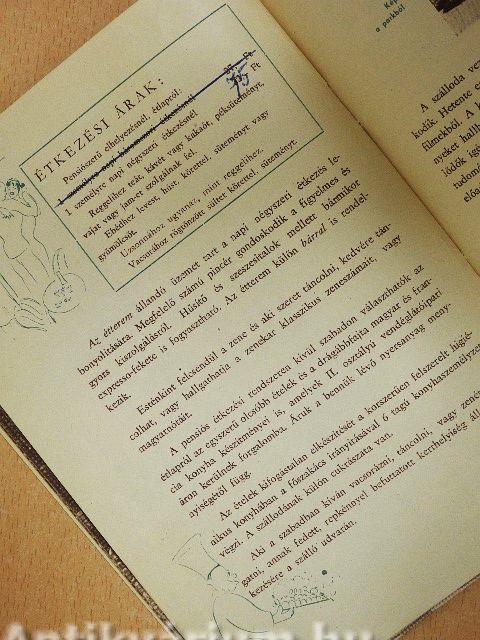 ÉTKEZÉSI ÁRAK:
Penziószerű elhelyezésnél, étlapról:
1 személyre napi háromszori étkezésnél Ft
1 személyre napi négyszeri étkezésnél 35 Ft
Reggelihez teát, kávét vagy kakaót, péksüteményt,
vajat vagy jam-et szolgálnak fel.
Ebédhez levest, húst, körettel, süteményt vagy
gyümölcsöt.
Uzsonnához ugyanaz, mint reggelihez.
Vacsorához rögzönzött sültet körettel, süteményt.
Az étterem állandó üzemet tart a napi négyszeri étkezés le-
bonyolítására. Megfelelő számú pincér gondoskodik a figyelmes és
gyors kiszolgálásról. Hűsítő és szeszesitalok mellett bármikor
expresso-fekete is fogyasztható. Az étterem külön bárral is rendel-
kezik.
Esténkint felcsendül a zene és aki szeret táncolni, kedvére tán-
colhat, vagy hallgathatja a zenekar klasszikus zeneszámait, vagy
magyarnótáit.
A penziós étkezési rendszeren kívül szabadon választhatók az
étlapról az egyszerű olcsóbb ételek és a drágábbfajta magyar és fran-
cia konyha készítményei is, amelyek II. osztályú vendéglátóipari
áron kerülnek forgalomba. Áruk a bennük lévő nyersanyag meny-
nyiségétől függ.
Az ételek kifogástalan elkészítését a korszerűen felszerelt higié-
nikus konyhában a főszakács irányításával 6 tagú konyhaszemélyzet
végzi. A szállodának külön cukrászata van.
Aki a szabadban kíván vacsorázni, táncolni, vagy zenét
gatni, annak fedett, repkénnyel befuttatott kerthelyiség áll
kezésére a szálló udvarán.
Kép
a parkból
A szálloda ve
kodik. Hetente e
filmekből. A k
nyéket hallh
lódók igé
tudomá
előa
Antikvárium.hu